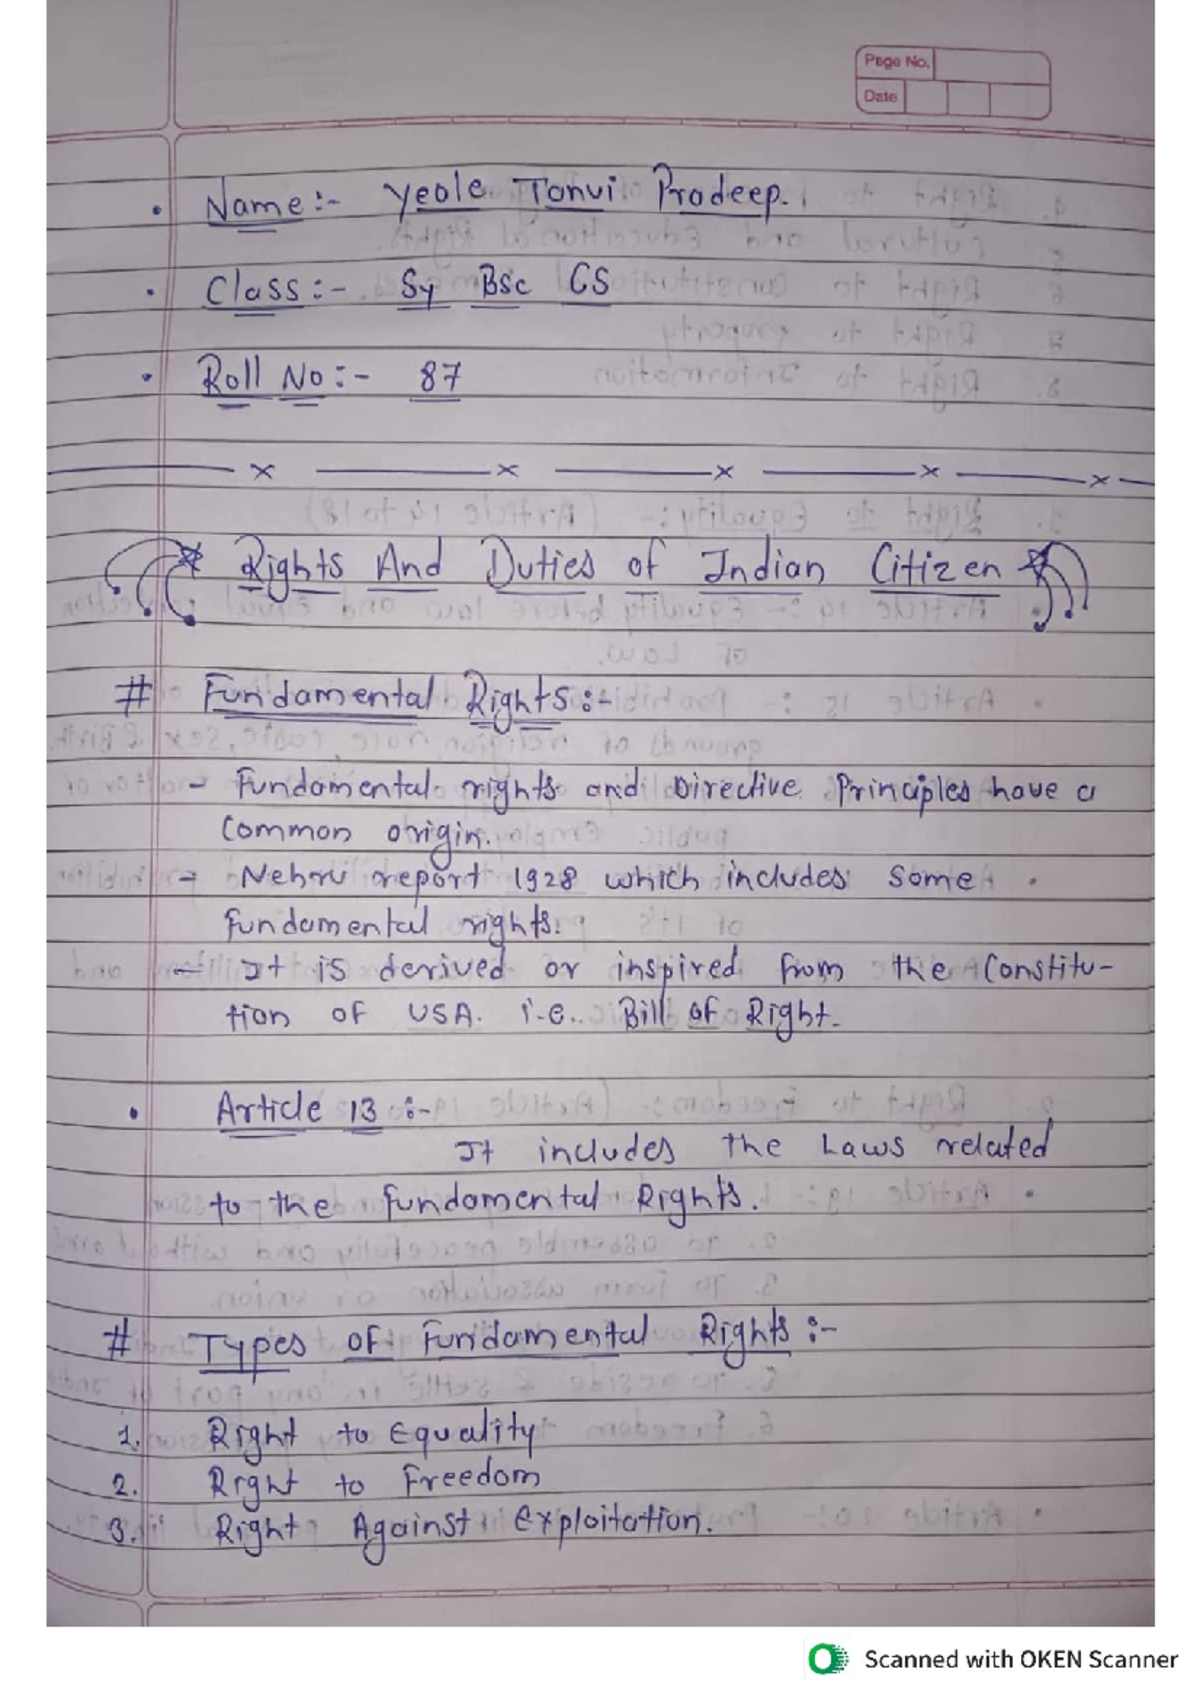 Page No.
Date
• Name:- Yeole Tanvi Pradeep.
• Class:- Sy BSc CS
• Roll No:- 87
x x x x x
* Rights And Duties of Indian Citizen *
# Fundamental Rights:-
- Fundamental rights and Directive Principles have a
common origin.
- Nehru report 1928 which includes some
fundamental rights.
- It is derived or inspired from the Constitu-
tion of USA. i.e.. Bill of Right.
• Article 13 :-
It includes the Laws related
to the fundamental Rights.
# Types of Fundamental Rights :-
1. Right to Equality
2. Right to Freedom
3. Right Against Exploitation.
Scanned with OKEN Scanner